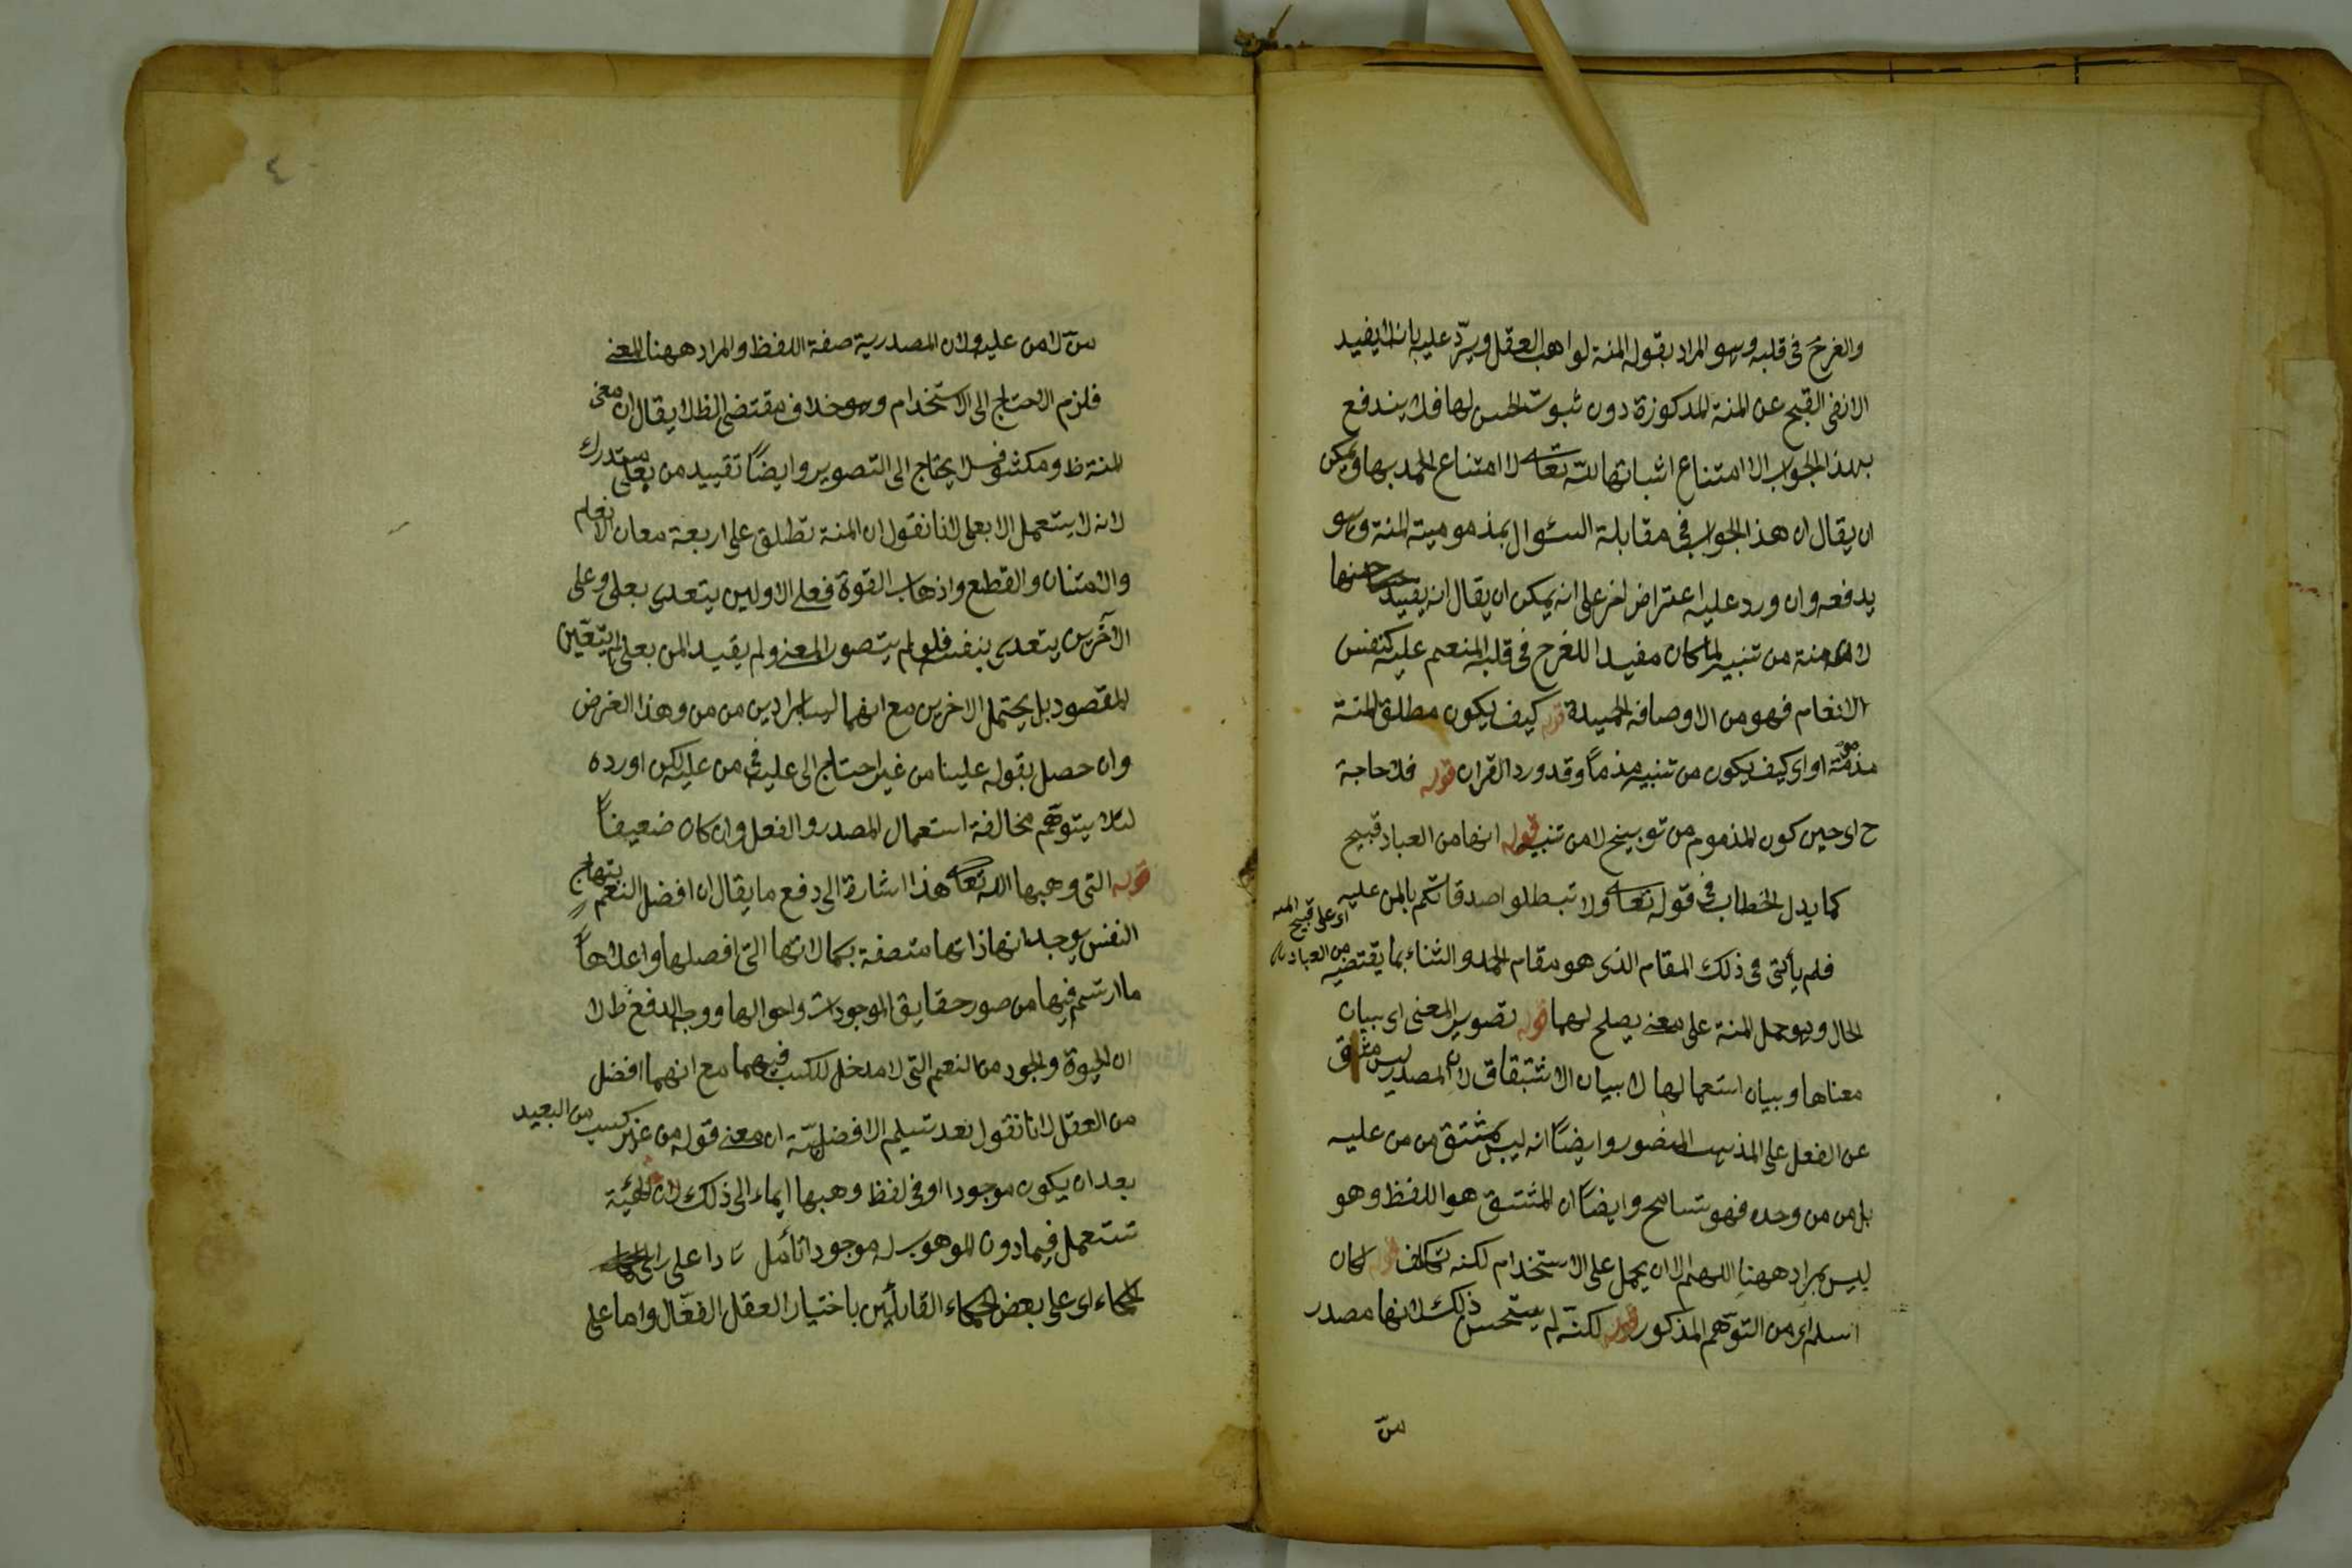 والفرح فى قلبه وهو المراد بقوله المنة لواهب العقل ويرد عليه بانه لا يفيد
الا نفى القبح عن المنة المذكورة دون ثبوت الحسن لها فلا يندفع
بهذا الجواب الا امتناع اثباتها لله تعالى لا امتناع الحمد بها ويمكن
ان يقال ان هذا الجواب فى مقابلة السئوال بمذمومية المنة وهو
يدفعه وان ورد عليه اعتراض اخر على انه يمكن ان يقال انه يفيد حسنها
لان منة من تنبيه لما كان مفيدا للفرح فى قلب المنعم عليه كنفس
الانعام فهو من الاوصاف الحميدة قوله كيف يكون مطلق المنة
مذمومة او اى كيف يكون من تنبيه مذما وقد ورد القران قوله فلا حاجة
ح اى حين كون المذموم من توبيخ لا من تنبيه قوله انها من العباد قبيح
كما يدل الخطاب فى قوله تعالى ولا تبطلوا صدقاتكم بالمن عليه
اى على قبح المنة
من العباد
فلم يأتى فى ذلك المقام الذى هو مقام الحمد والثناء بما يقتضيه
الحال وهو حمل المنة على معنى يصلح لهما قوله تصوير المعنى اى بيان
معناها وبيان استعمالها لا بيان الاشتقاق لان المصدر ليس مشتق
عن الفعل على المذهب المنصور وايضا انه ليس بمشتق من من عليه
بل من من وحده فهو تسامح وايضا ان المشتق هو اللفظ وهو
ليس بمراد ههنا اللهم الا ان يحمل على الاستخدام لكنه تكلف قوله لكان
اسلم اى من التوهم المذكور قوله لكنه لم يستحسن ذلك لانها مصدر
من
٤
من لا من عليه ولان المصدرية صفة اللفظ والمراد ههنا المعنى
فلزم الاحتاج الى الاستخدام وهو خلاف مقتضى الظ لا يقال ان معنى
المنة ظ ومكشوف لا يحتاج الى التصوير وايضا تقييد من بعلى مستدرك
لانه لا يستعمل الا بعلى لانا نقول ان المنة تطلق على اربعة معان الانعام
والامتنان والقطع واذهاب القوة فعلى الاولين يتعدى بعلى وعلى
الآخرين يتعدى بنفسه فلو لم يتصور المعنى ولم يقيد المن بعلى لم يتعين
المقصود بل يحتمل الاخرين مع انهما ليسا بمرادين من من وهذا الغرض
وان حصل بقوله علينا من غير احتاج الى عليه فى من عليه لكن اورده
لئلا يتوهم مخالفة استعمال المصدر والفعل وان كان ضعيفا
قوله التى وهبها الله تعالى هذا اشارة الى دفع ما يقال ان افضل النعم ابتهاج
النفس بوجدانها ذاتها متصفة بكمالاتها التى افضلها واعلاها
ما ارتسم فيها من صور حقايق الموجودات واحوالها ووجه الدفع ظ لا
ان الحيوة والوجود من النعم التى لا مدخل للكسب فيهما مع انهما افضل
من العقل لانا نقول بعد تسليم الافضلية ان معنى قوله من غير كسب من البعيد
بعد ان يكون موجودا او فى لفظ وهبها ايماء الى ذلك لان الهبة
تستعمل فيما دون الموهوب له موجودا تأمل على راى
الحكماء اى على بعض الحكماء القائلين باختيار العقل الفعال واما على